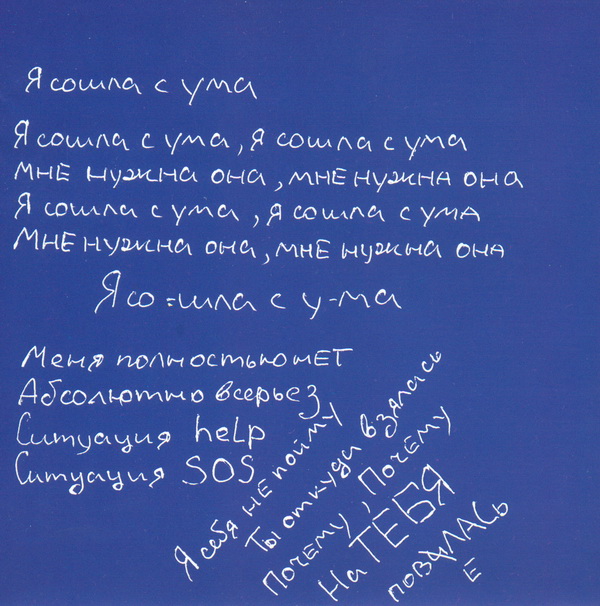 Я сошла с ума
Я сошла с ума, я сошла с ума
мне нужна она, мне нужна она
Я сошла с ума, я сошла с ума
Мне нужна она, мне нужна она
Я со=шла с у-ма
Меня полностью нет
Абсолютно всерьез
Ситуация help
Ситуация SOS
Я себя не пойму
Ты откуда взялась
Почему, Почему
На ТЕБЯ
повалась
Е